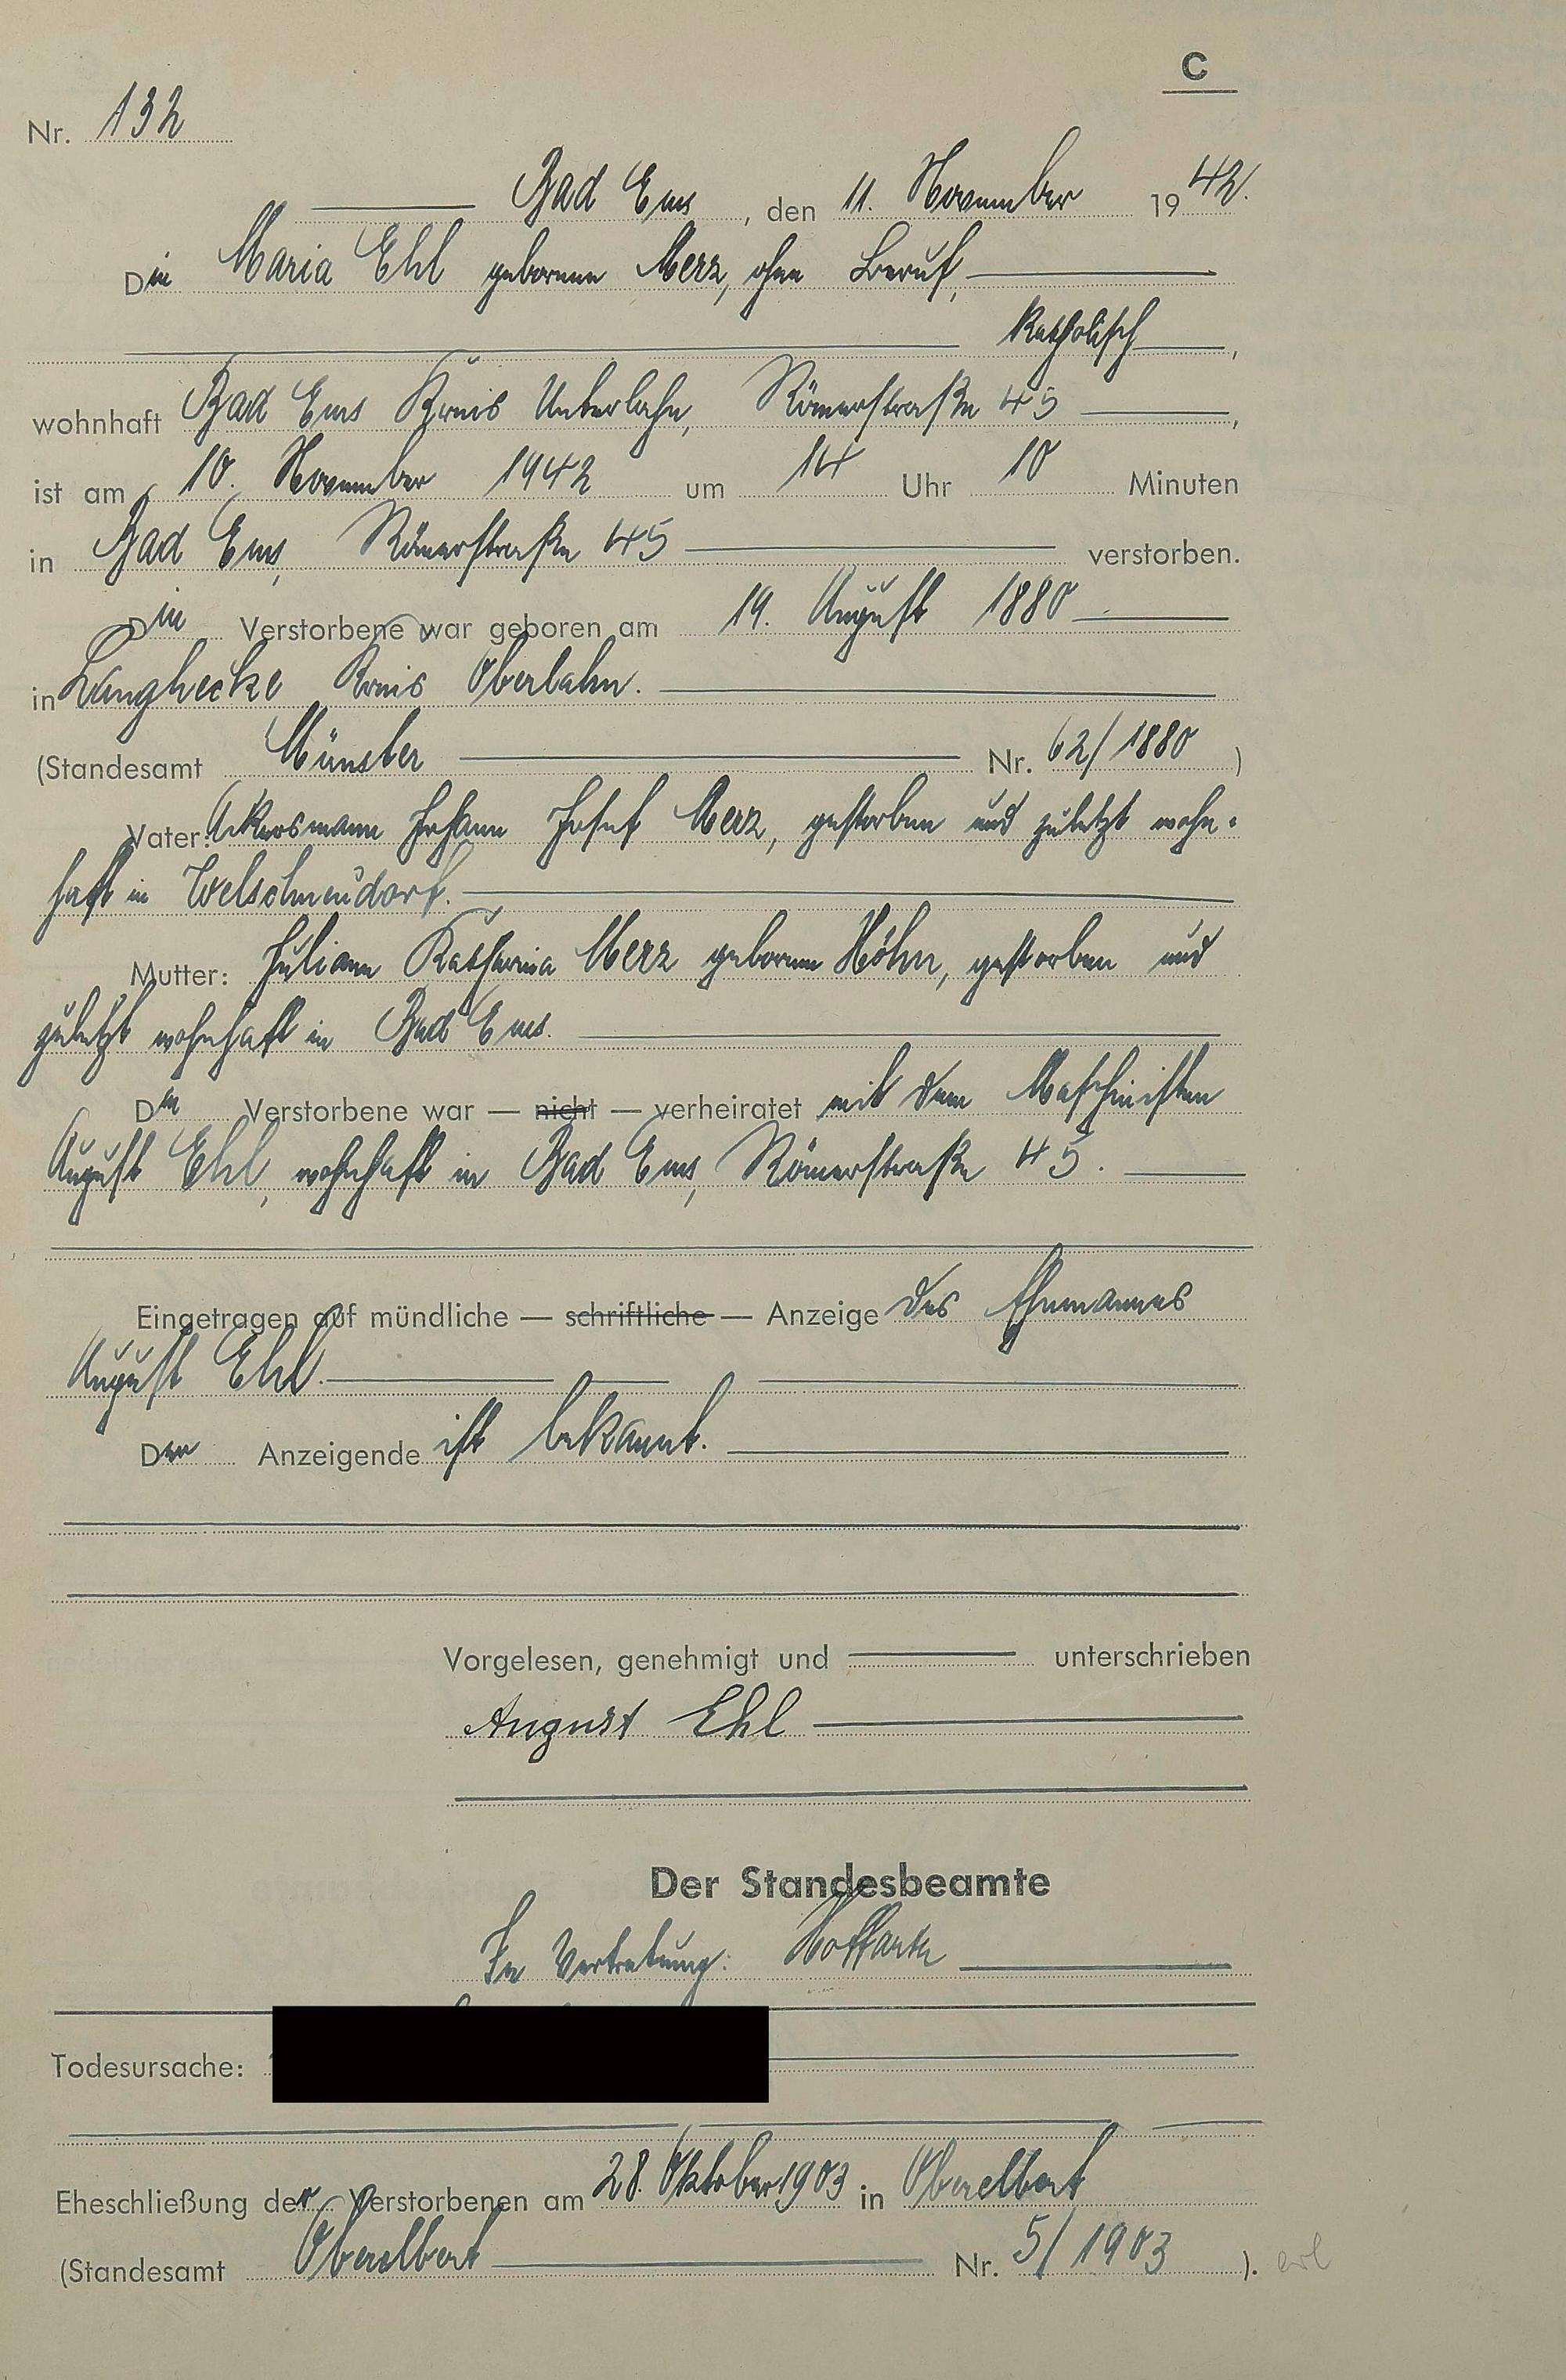 C
Nr. 132
Bad Ems, den 11. November 1942.
Die Maria Ehl geborene Merz, ohne Beruf,
katholisch,
wohnhaft Bad Ems Kreis Unterlahn, Römerstraße 45,
ist am 10. November 1942 um 14 Uhr 10 Minuten
in Bad Ems, Römerstraße 45 verstorben.
Die Verstorbene war geboren am 19. August 1880
in Langhecke Kreis Oberlahn.
(Standesamt Münster Nr. 62/1880)
Vater: Ackersmann Johann Josef Merz, gestorben und zuletzt wohn-
haft in Welschneudorf.
Mutter: Juliane Katharina Merz geborene Höhn, gestorben und
zuletzt wohnhaft in Bad Ems.
Die Verstorbene war — nicht — verheiratet mit dem Maschinisten
August Ehl, wohnhaft in Bad Ems, Römerstraße 45.
Eingetragen auf mündliche — schriftliche — Anzeige des Ehemannes
August Ehl.
Der Anzeigende ist bekannt.
Vorgelesen, genehmigt und unterschrieben
August Ehl
Der Standesbeamte
In Vertretung:
Todesursache:
Eheschließung der Verstorbenen am 28. Oktober 1903 in Oberelbert
(Standesamt Oberelbert Nr. 5/1903).
erl